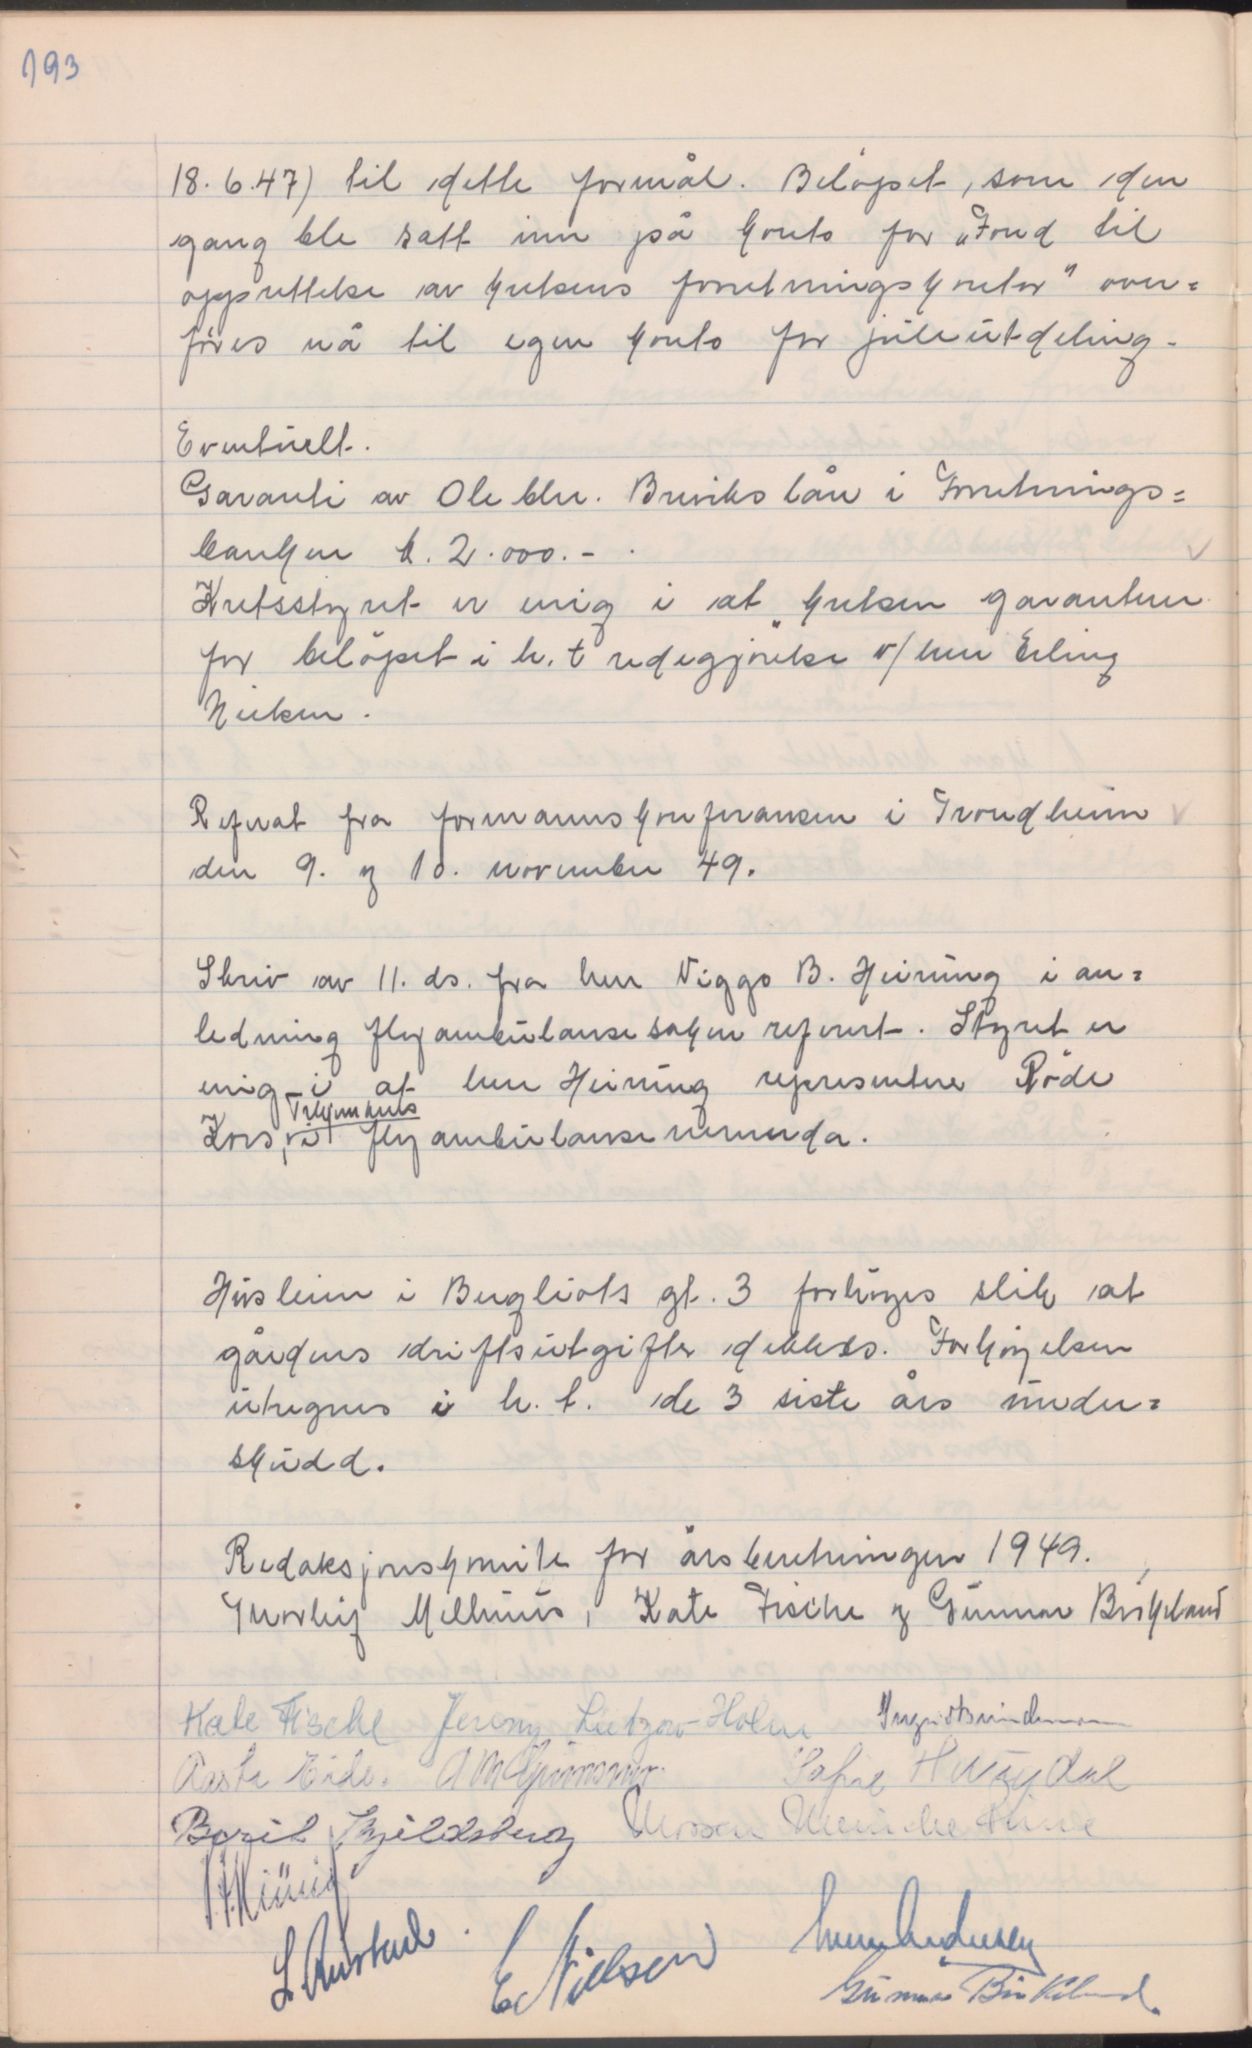 193
18.6.47) til dette formål. Beløpet, som den
gang ble satt inn på konto for "Fond til
opprettelse av kretsens forretningskontor" over=
føres nå til egen konto for juleutdeling.
Eventuelt.
Garanti av Ole Chr. Breviks lån i Forretnings=
banken k. 2.000.-.
Kretsstyret er enig i at kretsen garanterer
for beløpet i h.t redegjørelse v/herr Erling
Nielsen.
Referat fra formannskonferansen i Trondheim
den 9. og 10. november 49.
Skriv av 11. ds. fra herr Viggo B. Heiring i an=
ledning flyambulansesaken referert. Styret er
enig i at herr Heiring representerer Røde
Kors, i Trikjemanns flyambulansenemnda.
Husleien i Bergliots gt. 3 forhøyes slik at
gårdens driftsutgifter dekkes. Forhøyelsen
utregnes i h.t. de 3 siste års under=
skudd.
Redaksjonskomite for årsberetningen 1949.
Thorleif Mellhuus, Kate Fische og Gunnar Birkeland
Kate Fische Jenny Lützow-Holm
Aasta Eide. Sofie Huugdal
Boril Kjeldsberg
E. Nielsen
Gunnar Birkeland.